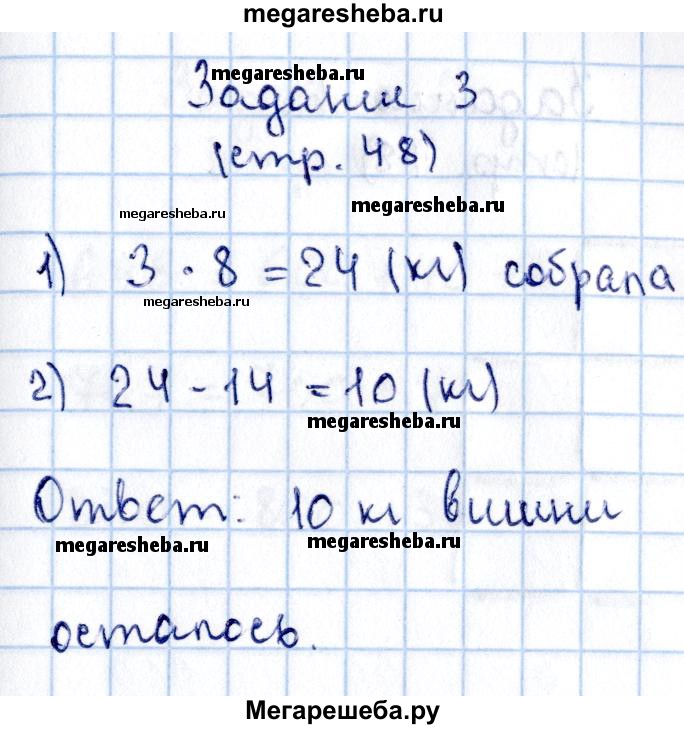 megaresheba.ru
megaresheba.ru
Задание 3
(стр. 48)
megaresheba.ru
megaresheba.ru
1) 3 · 8 = 24 (кг) собрала
megaresheba.ru
2) 24 - 14 = 10 (кг)
megaresheba.ru
Ответ: 10 кг вишни
megaresheba.ru
megaresheba.ru
осталось.
Мегарешеба.ру